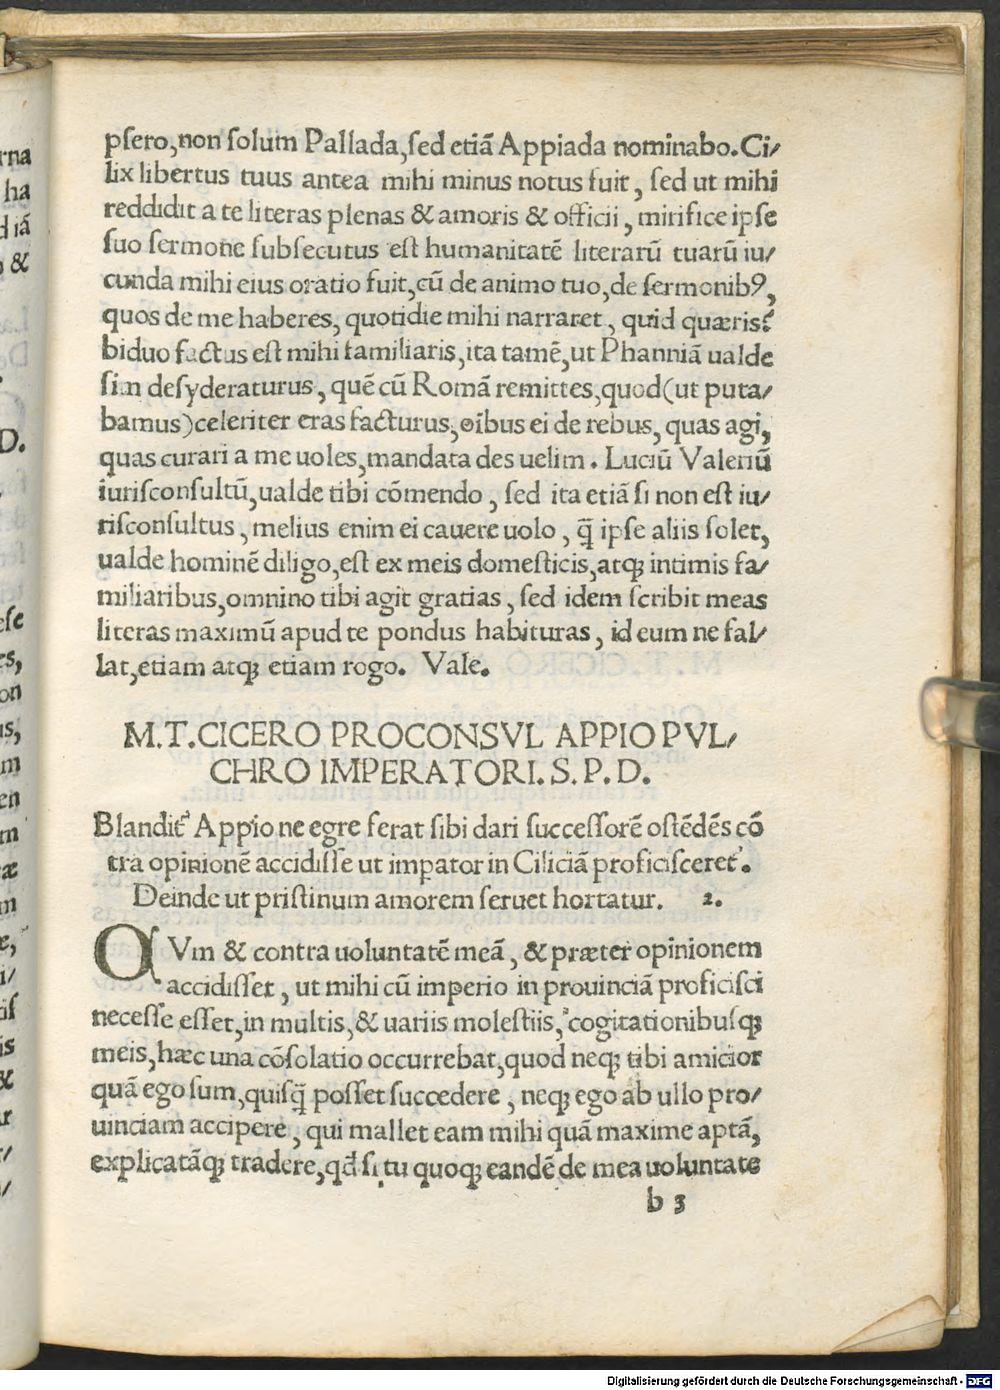 psero, non solum Pallada, sed etiã Appiada nominabo. Ci/
lix libertus tuus antea mihi minus notus fuit, sed ut mihi
reddidit a te literas plenas & amoris & officii, mirifice ipse
suo sermone subsecutus est humanitatẽ literarũ tuarũ iu/
cunda mihi eius oratio fuit, cũ de animo tuo, de sermonibꝰ,
quos de me haberes, quotidie mihi narraret, quid quæris?
biduo factus est mihi familiaris, ita tamẽ, ut Phanniã ualde
sim desyderaturus, quẽ cũ Romã remittes, quod (ut puta/
bamus) celeriter eras facturus, oĩbus ei de rebus, quas agi,
quas curari a me uoles, mandata des uelim. Luciũ Valeriũ
iurisconsultũ, ualde tibi cõmendo, sed ita etiã si non est iu/
risconsultus, melius enim ei cauere uolo, q̃ ipse aliis solet,
ualde hominẽ diligo, est ex meis domesticis, atqꝫ intimis fa/
miliaribus, omnino tibi agit gratias, sed idem scribit meas
literas maximũ apud te pondus habituras, id eum ne fal/
lat, etiam atqꝫ etiam rogo. Vale.
M.T.CICERO PROCONSVL APPIO PVL/
CHRO IMPERATORI. S. P. D.
Blandit᷑ Appio ne egre ferat sibi dari successorẽ ostẽdẽs cõ
tra opinionẽ accidisse ut imꝑator in Ciliciã proficisceret᷑.
Deinde ut pristinum amorem seruet hortatur. 2.
QVm & contra uoluntatẽ meã, & præter opinionem
accidisset, ut mihi cũ imperio in prouinciã proficisci
necesse esset, in multis, & uariis molestiis, cogitationibusqꝫ
meis, hæc una cõsolatio occurrebat, quod neqꝫ tibi amicior
quã ego sum, quisq̃ posset succedere, neqꝫ ego ab ullo pro/
uinciam accipere, qui mallet eam mihi quã maxime aptã,
explicatãqꝫ tradere, qđ si tu quoqꝫ eandẽ de mea uoluntate
b 3
rna
ha
d iã
&
D.
ese
es,
on
us,
m
en
m
æ
m
e,
i/
is
&
r
Digitalisierung gefördert durch die Deutsche Forschungsgemeinschaft - DFG